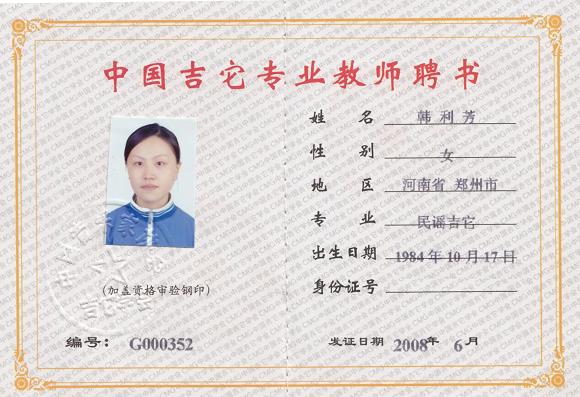 中国吉它专业教师聘书
姓 名 韩利芳
性 别 女
地 区 河南省 郑州市
专 业 民谣吉它
出生日期 1984年10月17日
身份证号
(加盖资格审验钢印)
编号: G000352
发证日期 2008年 6月